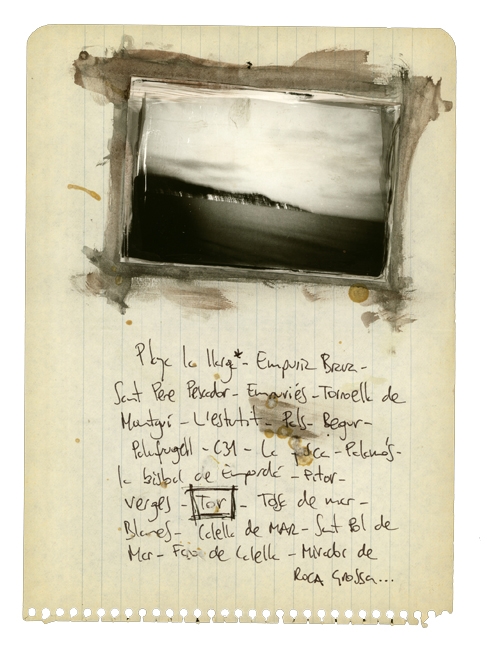 Playa la llarga* - Empuria Brava -
Sant Pere Pescador - Empuriés - Torroella de
Montgrí - L'estutit - Pals - Begur -
Palafrugell - C31 - La fosca - Palamós -
la bisbal de Empordá - Pitor -
verges - Tor - Tosc de mar -
Blanes - Calella de MAR - Sant Pol de
Mar - Faro de Calella - Mirador de
ROCA GROSSA...